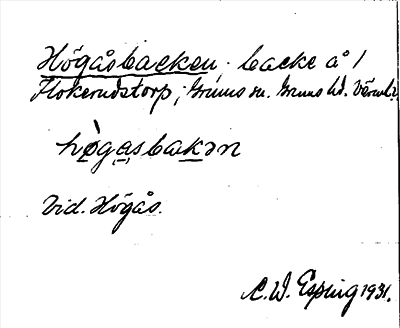 Högåsbacken. backe å 1
Flokerudstorp, Grums sn. Grums hd. Värml.
hø̀gasbakən
Vid. Högås.
C. W. Esping 1931.